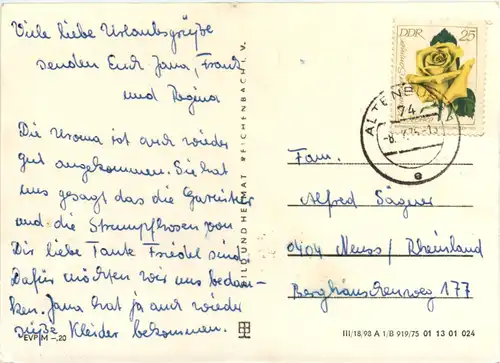 Viele liebe Urlaubsgrüße
senden Euch Jana, Frank
und Regina
Die Uroma ist auch wieder
gut angekommen. Sie hat
uns gesagt das die Garnitur
und die Strumpfhosen von
Dir liebe Tante Friedel sind.
Dafür möchten wir uns bedan-
ken. Jana hat ja auch wieder
süße Kleider bekommen.
EVP M -,20
BILD UND HEIMAT REICHENBACH I. V.
DDR 25
ALTENBURG
74
Fam.
Alfred Sägner
0404 Neuss/Rheinland
Berghäuschenweg 177
III/18/98 A 1/B 919/75 01 13 01 024